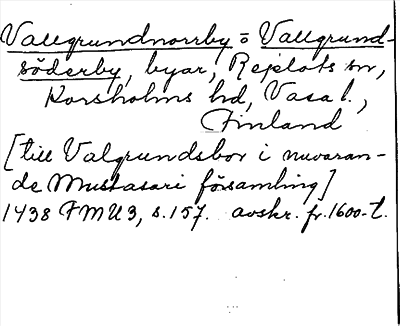 Vallgrundnorrby o Vallgrund-
söderby, byar, Replots sn,
Korsholms hd, Vasa l.,
Finland
[till Valgrundsbor i nuvaran-
de Mustasari församling]
1438 FMU 3, s. 157. avskr. fr. 1600-t.